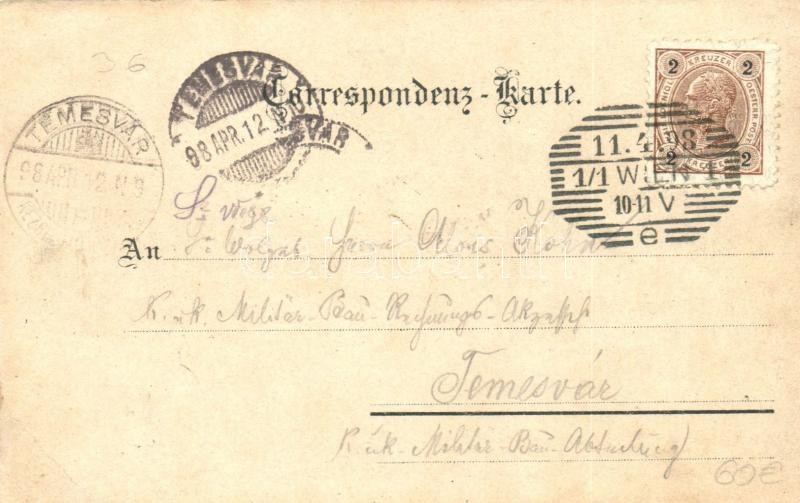 36
TEMESVÁR
98 APR. 12
TEMESVÁR
98 APR. 12
Correspondenz-Karte.
2 KREUZER 2
2 KREUZER 2
11.4.98
1/1 WIEN 1
10-11 V
e
An Herrn Alois Kohn
K. u k. Militär-Bau-Rechnungs-Akzessist
Temesvár
K. u k. Militär-Bau-Abteilung
60€
darabanth